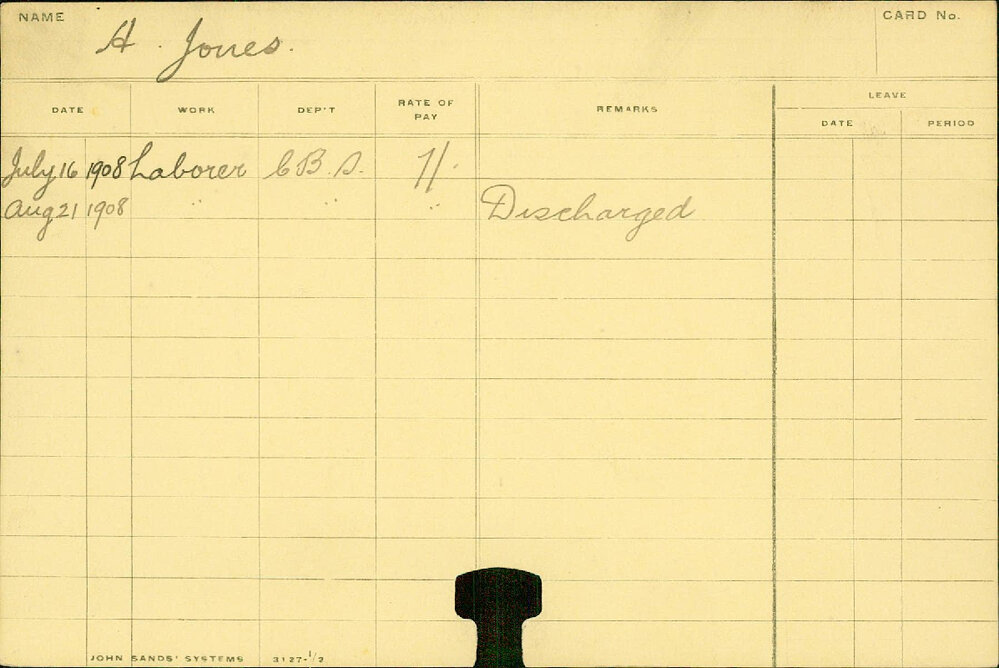 NAME
CARD No.
A. Jones.
DATE WORK DEP'T RATE OF PAY REMARKS LEAVE
DATE PERIOD
July 16 1908 Laborer C.B.S. 7/.
Aug 21 1908 " " " Discharged
JOHN SANDS' SYSTEMS 3127-1/2